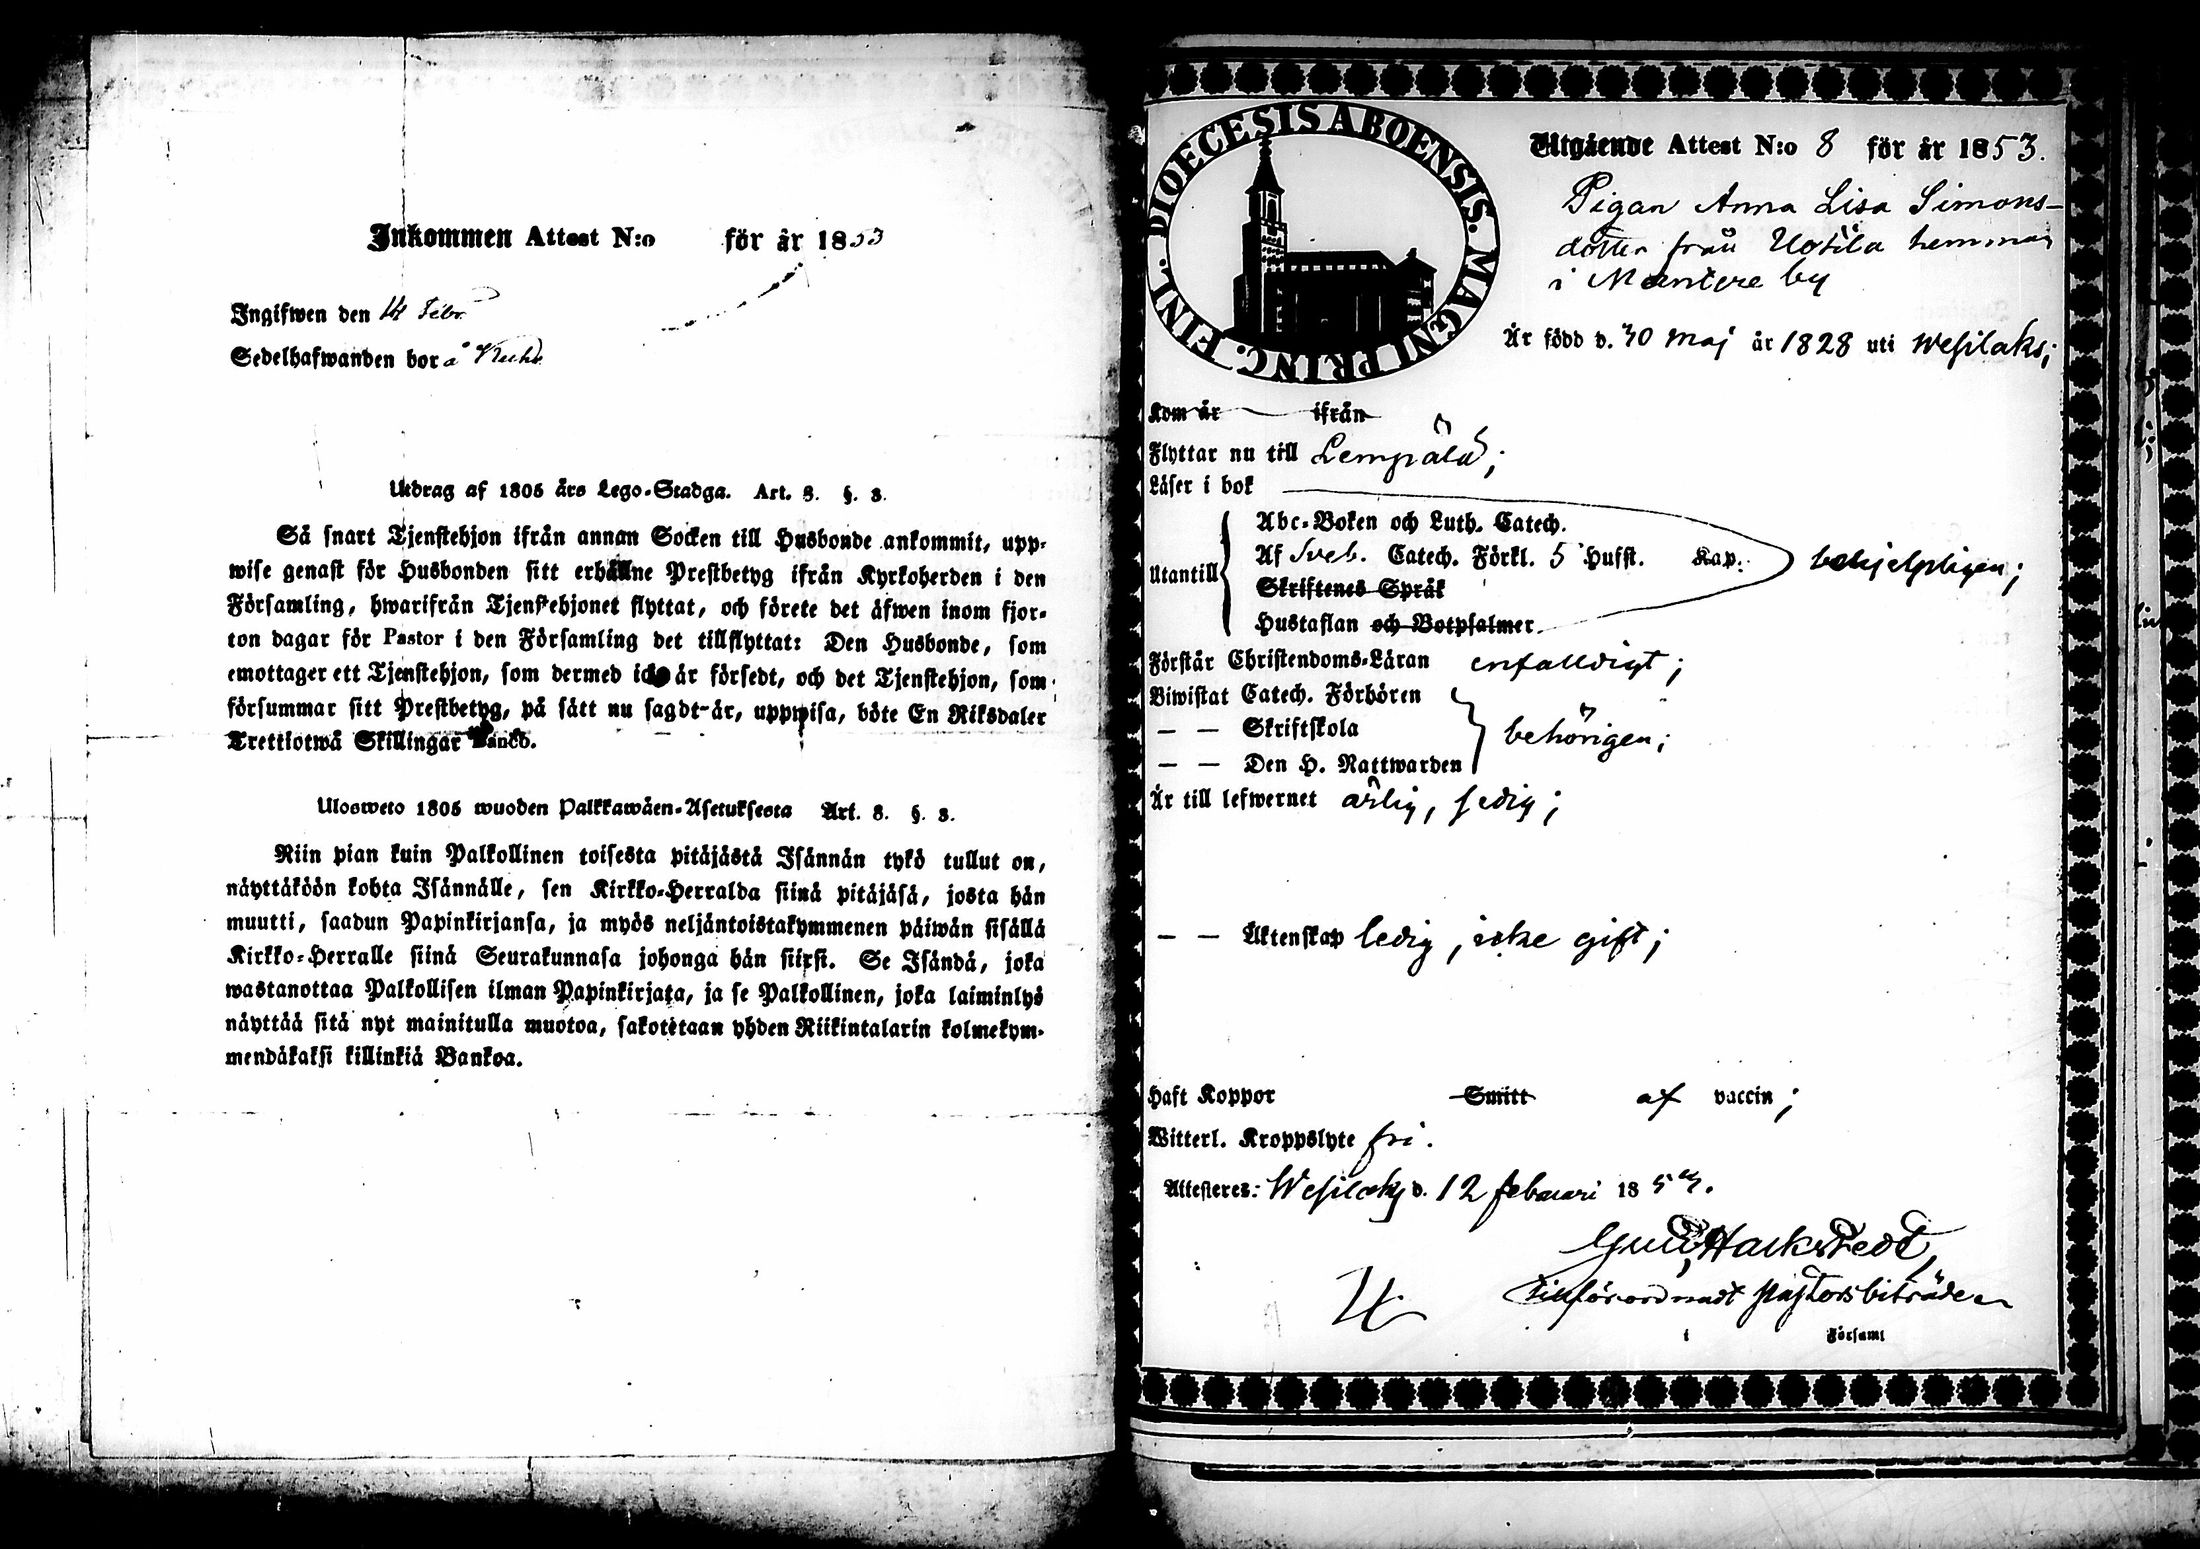 Inkommen Attest N:o för år 1853
Ingifwen den 14 Febr.
Sedelhafwanden bor å
Utdrag af 1805 års Lego-Stadga. Art. 8. §. 3.
Så snart Tjenstehjon ifrån annan Socken till Husbonde ankommit, upp-
wise genast för Husbonden sitt erhållne Prestbetyg ifrån Kyrkoherden i den
Församling, hwarifrån Tjenstehjonet flyttat, och förete det äfwen inom fjor-
ton dagar för Pastor i den Församling det tillflyttat: Den Husbonde, som
emottager ett Tjenstehjon, som dermed icke är försedt, och det Tjenstehjon, som
försummar sitt Prestbetyg, på sätt nu sagdt-är, uppwisa, böte En Riksdaler
Trettiotwå Skillingar Banco.
Ulosweto 1805 wuoden Palkkawäen-Asetuksesta Art. 8. §. 3.
Niin pian kuin Palkollinen toisesta pitäjästä Isännän tykö tullut on,
näyttäköön kohta Isännälle, sen Kirkko-Herralda siinä pitäjäsä, josta hän
muutti, saadun Papinkirjansa, ja myös neljäntoistakymmenen päiwän sisällä
Kirkko-Herralle siinä Seurakunnasa johonga hän siirsi. Se Isändä, joka
wastanottaa Palkollisen ilman Papinkirjata, ja se Palkollinen, joka laiminlyö
näyttää sitä nyt mainitulla muotoa, sakotetaan yhden Riikintalarin kolmekym-
mendäkaksi killinkiä Bankoa.
DIOECESIS ABOENSIS. MAGNI PRINC. FINL.
Utgående Attest N:o 8 för år 1853.
Pigan Anna Lisa Simons-
dotter från Uotila hemman
i Mantere by
Är född d. 30 Maj år 1828 uti Wesilaks;
Kom år ifrån
Flyttar nu till Lempälä;
Läser i bok
Abc-Boken och Luth. Catech.
Utantill Af Sveb. Catech. Förkl. 5 Hufst. Kap. behjelpligen;
Skriftenes Språk
Hustaflan och Botpsalmer
Förstår Christendoms-Läran enfaldigt;
Biwistat Catech. Förhören
— — Skriftskola behörigen;
— — Den H. Nattwarden
Är till lefwernet ärlig, sedig;
— — Äktenskap ledig, icke gift;
Haft Koppor Smitt af vaccin;
Witterl. Kroppslyte fri.
Attesteres: Wesilaks d. 12 februari 1853.
Hackstedt,
Tillförordnadt Pastorsbiträde
i Församl